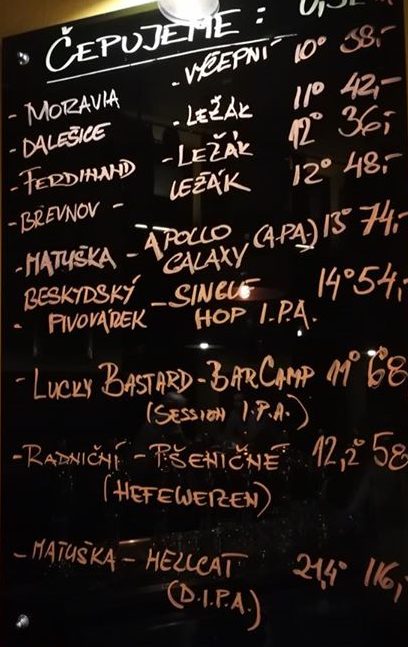 ČEPUJEME:
- MORAVIA - VÝČEPNÍ 10° 38,-
- DALEŠICE - LEŽÁK 11° 42,-
- FERDINAND - LEŽÁK 12° 36,-
- BŘEVNOV - LEŽÁK 12° 48,-
- MATUŠKA - APOLLO GALAXY (A.P.A.) 13° 74,-
BESKYDSKÝ - SINGLE 14° 54,-
- PIVOVÁREK HOP I.P.A.
- LUCKY BASTARD - BARCAMP 11° 68
(SESSION I.P.A.)
- RADNIČNÍ - PŠENIČNÉ 12,2° 58
(HEFEWEIZEN)
- MATUŠKA - HELLCAT 21,4° 116,-
(D.I.P.A.)